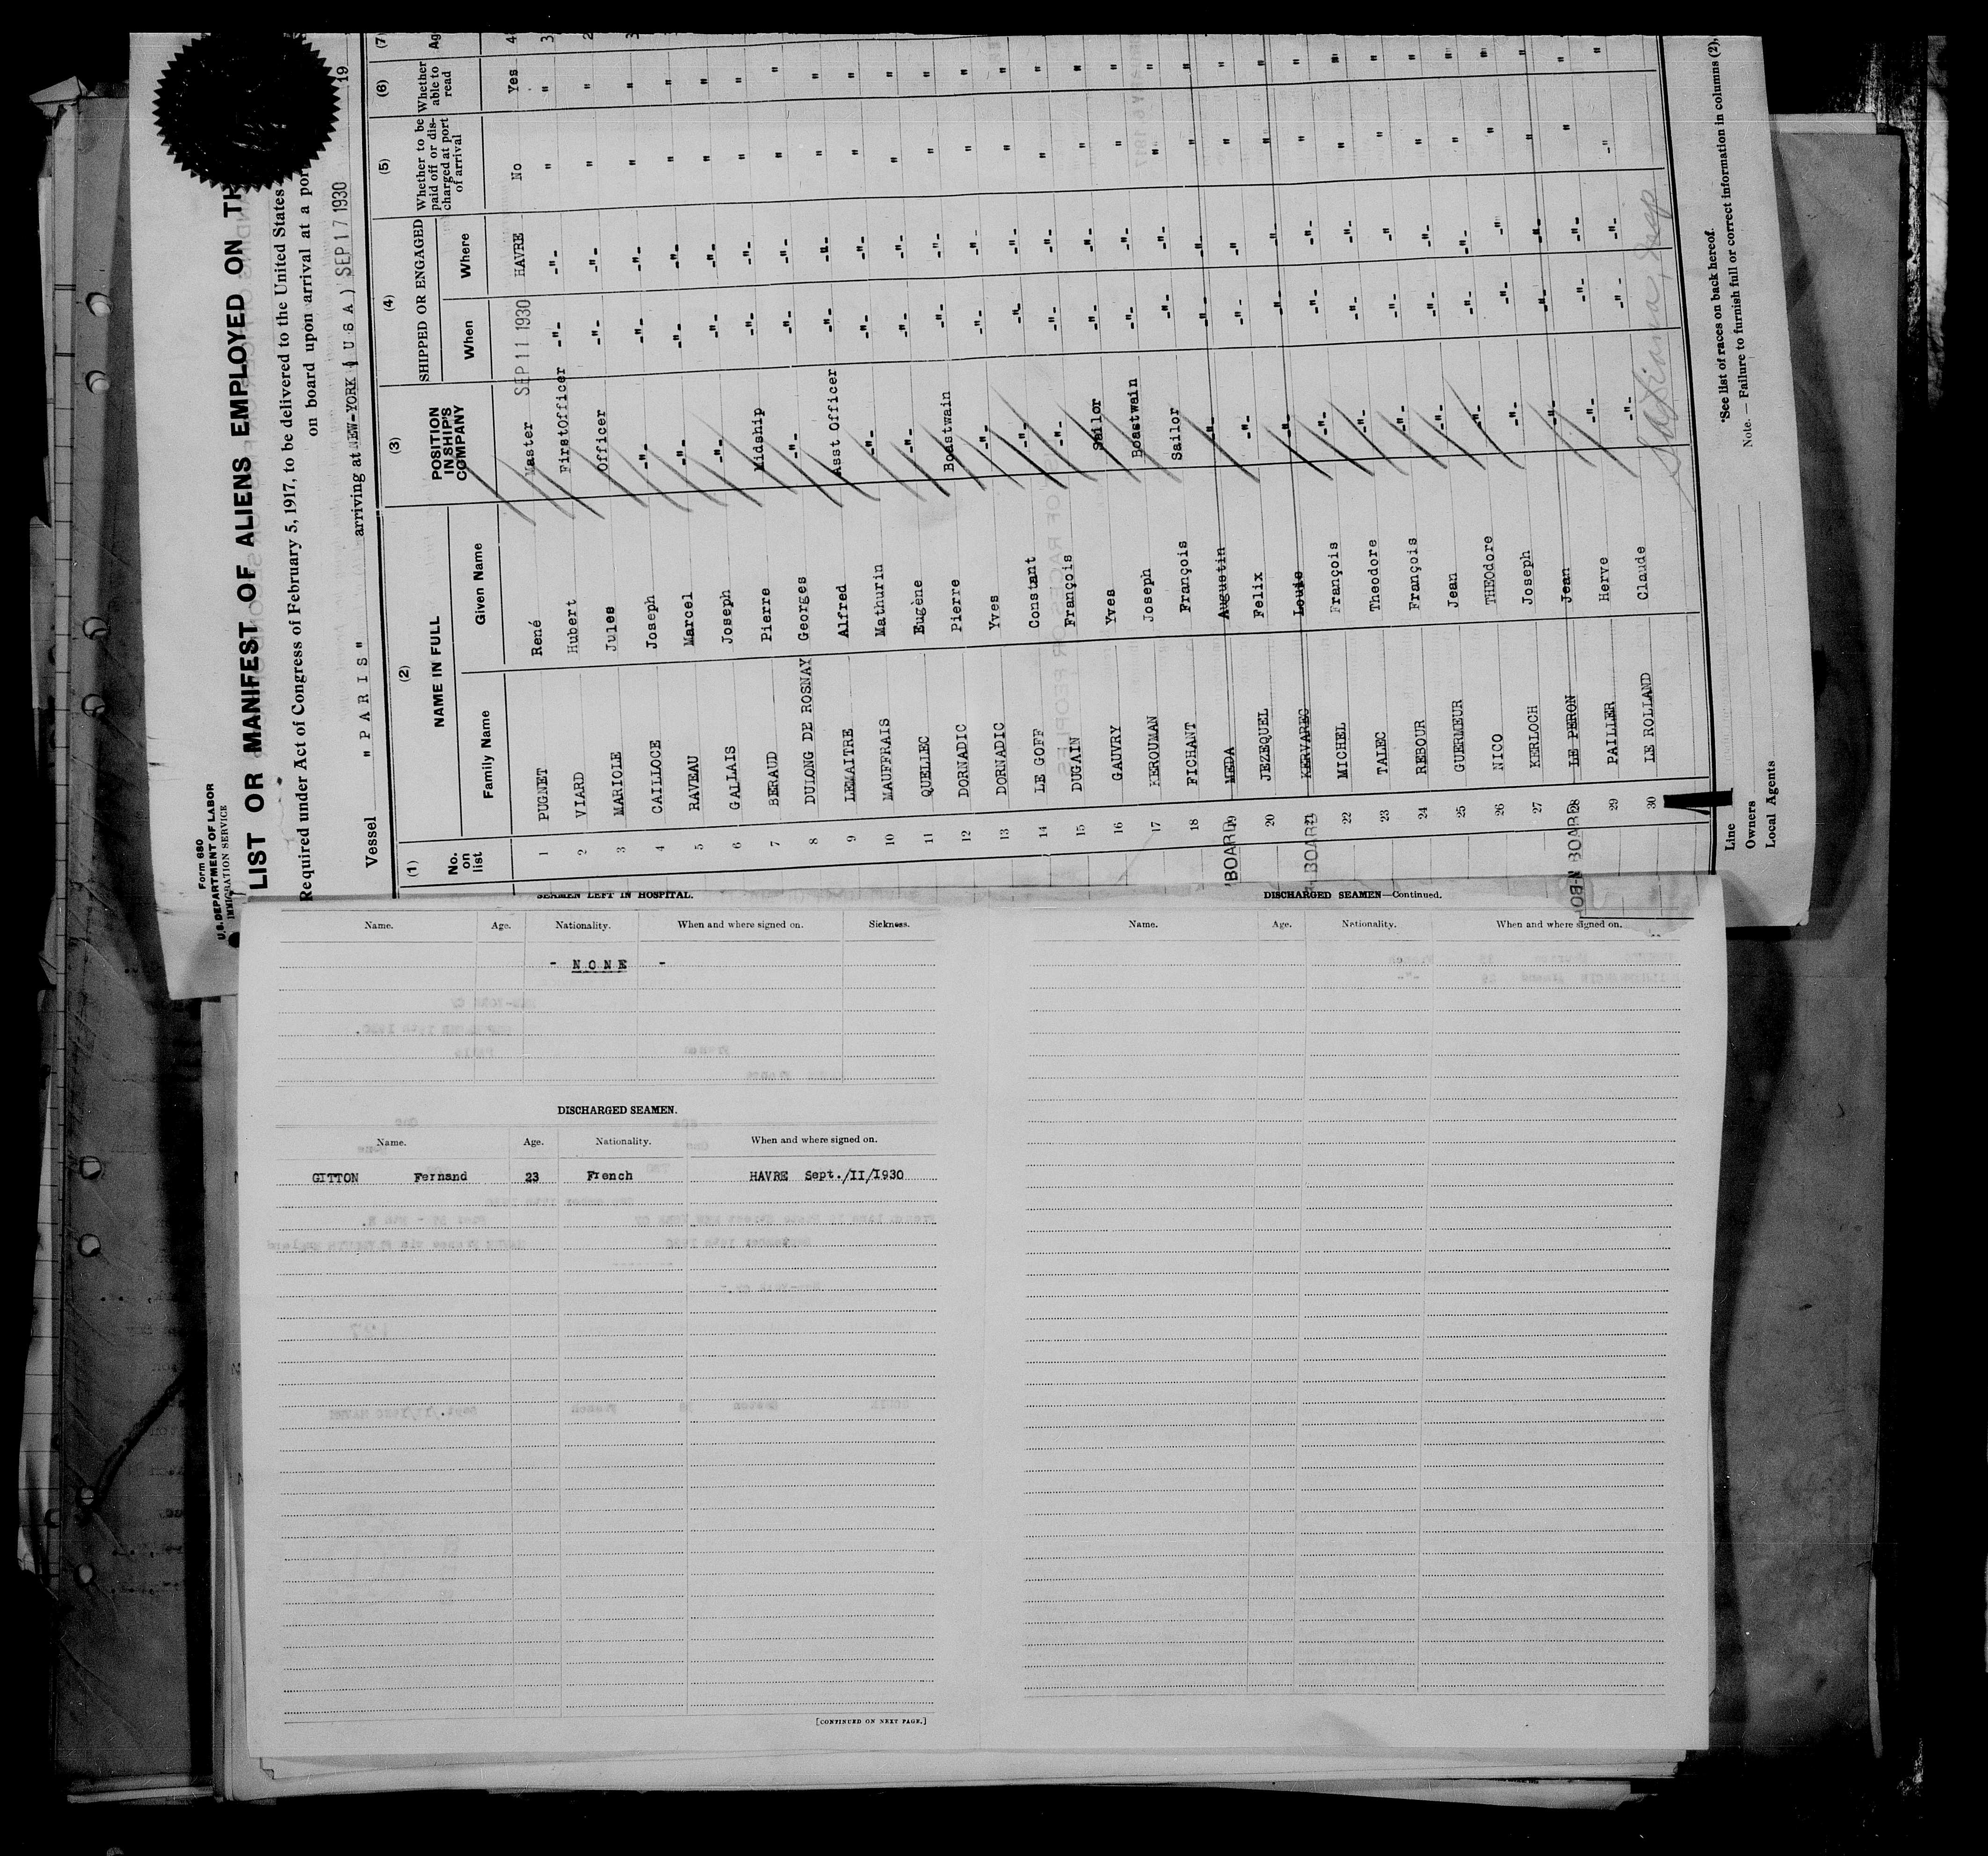 Form 680
U.S. DEPARTMENT OF LABOR
IMMIGRATION SERVICE
LIST OR MANIFEST OF ALIENS EMPLOYED ON TH
Required under Act of Congress of February 5, 1917, to be delivered to the United States
on board upon arrival at a por
Vessel " P A R I S " arriving at NEW-YORK ( U S A ) SEP 17 1930 19
(1) (2) (3) (4) (5) (6) (7)
No. on list NAME IN FULL POSITION IN SHIP'S COMPANY SHIPPED OR ENGAGED Whether to be paid off or discharged at port of arrival Whether able to read Ag
Family Name Given Name When Where
1 PUGNET René Master SEP 11 1930 HAVRE No Yes 4
2 VIARD Hubert FirstOfficer -"- -"- " " 3
3 MARIOLE Jules Officer -"- -"- " " 2
4 CAILLOCE Joseph -"- -"- -"- " " 3
5 RAVEAU Marcel -"- -"- -"- " "
6 GALLAIS Joseph -"- -"- -"- " "
7 BERAUD Pierre Midship -"- -"- " "
8 DULONG DE ROSNAY Georges -"- -"- -"- " "
9 LEMAITRE Alfred Asst Officer -"- -"- " "
10 MAUFFRAIS Mathurin -"- -"- -"- " "
11 QUELLEC Eugène -"- -"- -"- " "
12 DORNADIC Pierre Boastwain -"- -"- " "
13 DORNADIC Yves -"- -"- -"- " "
14 LE GOFF Constant -"- -"- -"- " "
15 DUGAIN François -"- -"- -"- " "
16 GAUVRY Yves Sailor -"- -"- " "
17 KEROUMAN Joseph Boastwain -"- -"- " "
18 FICHANT François Sailor -"- -"- " "
19 MEDA Augustin -"- -"- -"- " "
20 JEZEQUEL Felix -"- -"- -"- " "
21 KERVAREC Louis -"- -"- -"- " "
22 MICHEL François -"- -"- -"- " "
23 TALEC Theodore -"- -"- -"- " "
24 REBOUR François -"- -"- -"- " "
25 GUERMEUR Jean -"- -"- -"- " "
26 NICO THEOdore -"- -"- -"- " "
27 KERLOCH Joseph -"- -"- -"- " "
28 LE PERON Jean -"- -"- -"- " "
29 PAILLER Herve -"- -"- -"- " "
30 LE ROLLAND Claude -"- -"- -"- -"- "
BOARD
BOARD
BOARD
Line
Owners
Local Agents
*See list of races on back hereof.
Note.—Failure to furnish full or correct information in columns (2),
SEAMEN LEFT IN HOSPITAL.
Name. Age. Nationality. When and where signed on. Sickness.
- NONE -
DISCHARGED SEAMEN.
Name. Age. Nationality. When and where signed on.
GITTON Fernand 23 French HAVRE Sept./II/1930
[CONTINUED ON NEXT PAGE.]
DISCHARGED SEAMEN—Continued.
Name. Age. Nationality. When and where signed on.